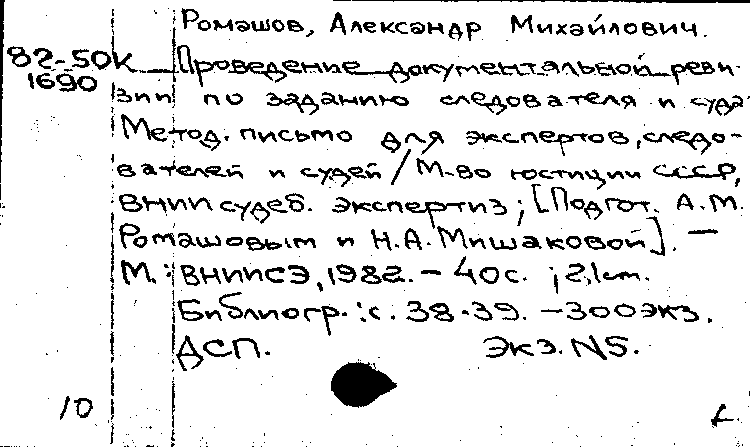 Ромашов, Александр Михайлович.
82-50К Проведение документальной реви-
1690
зии по заданию следователя и суда
Метод. письмо для экспертов, следо-
вателей и судей / М-во юстиции СССР,
ВНИИ судеб. экспертиз; [Подгот. А.М.
Ромашовым и Н.А. Мишаковой]. —
М.: ВНИИСЭ, 1982. – 40с. ; 21см.
Библиогр.: с. 38-39. – 300 экз.
ДСП. Экз. N5.
10